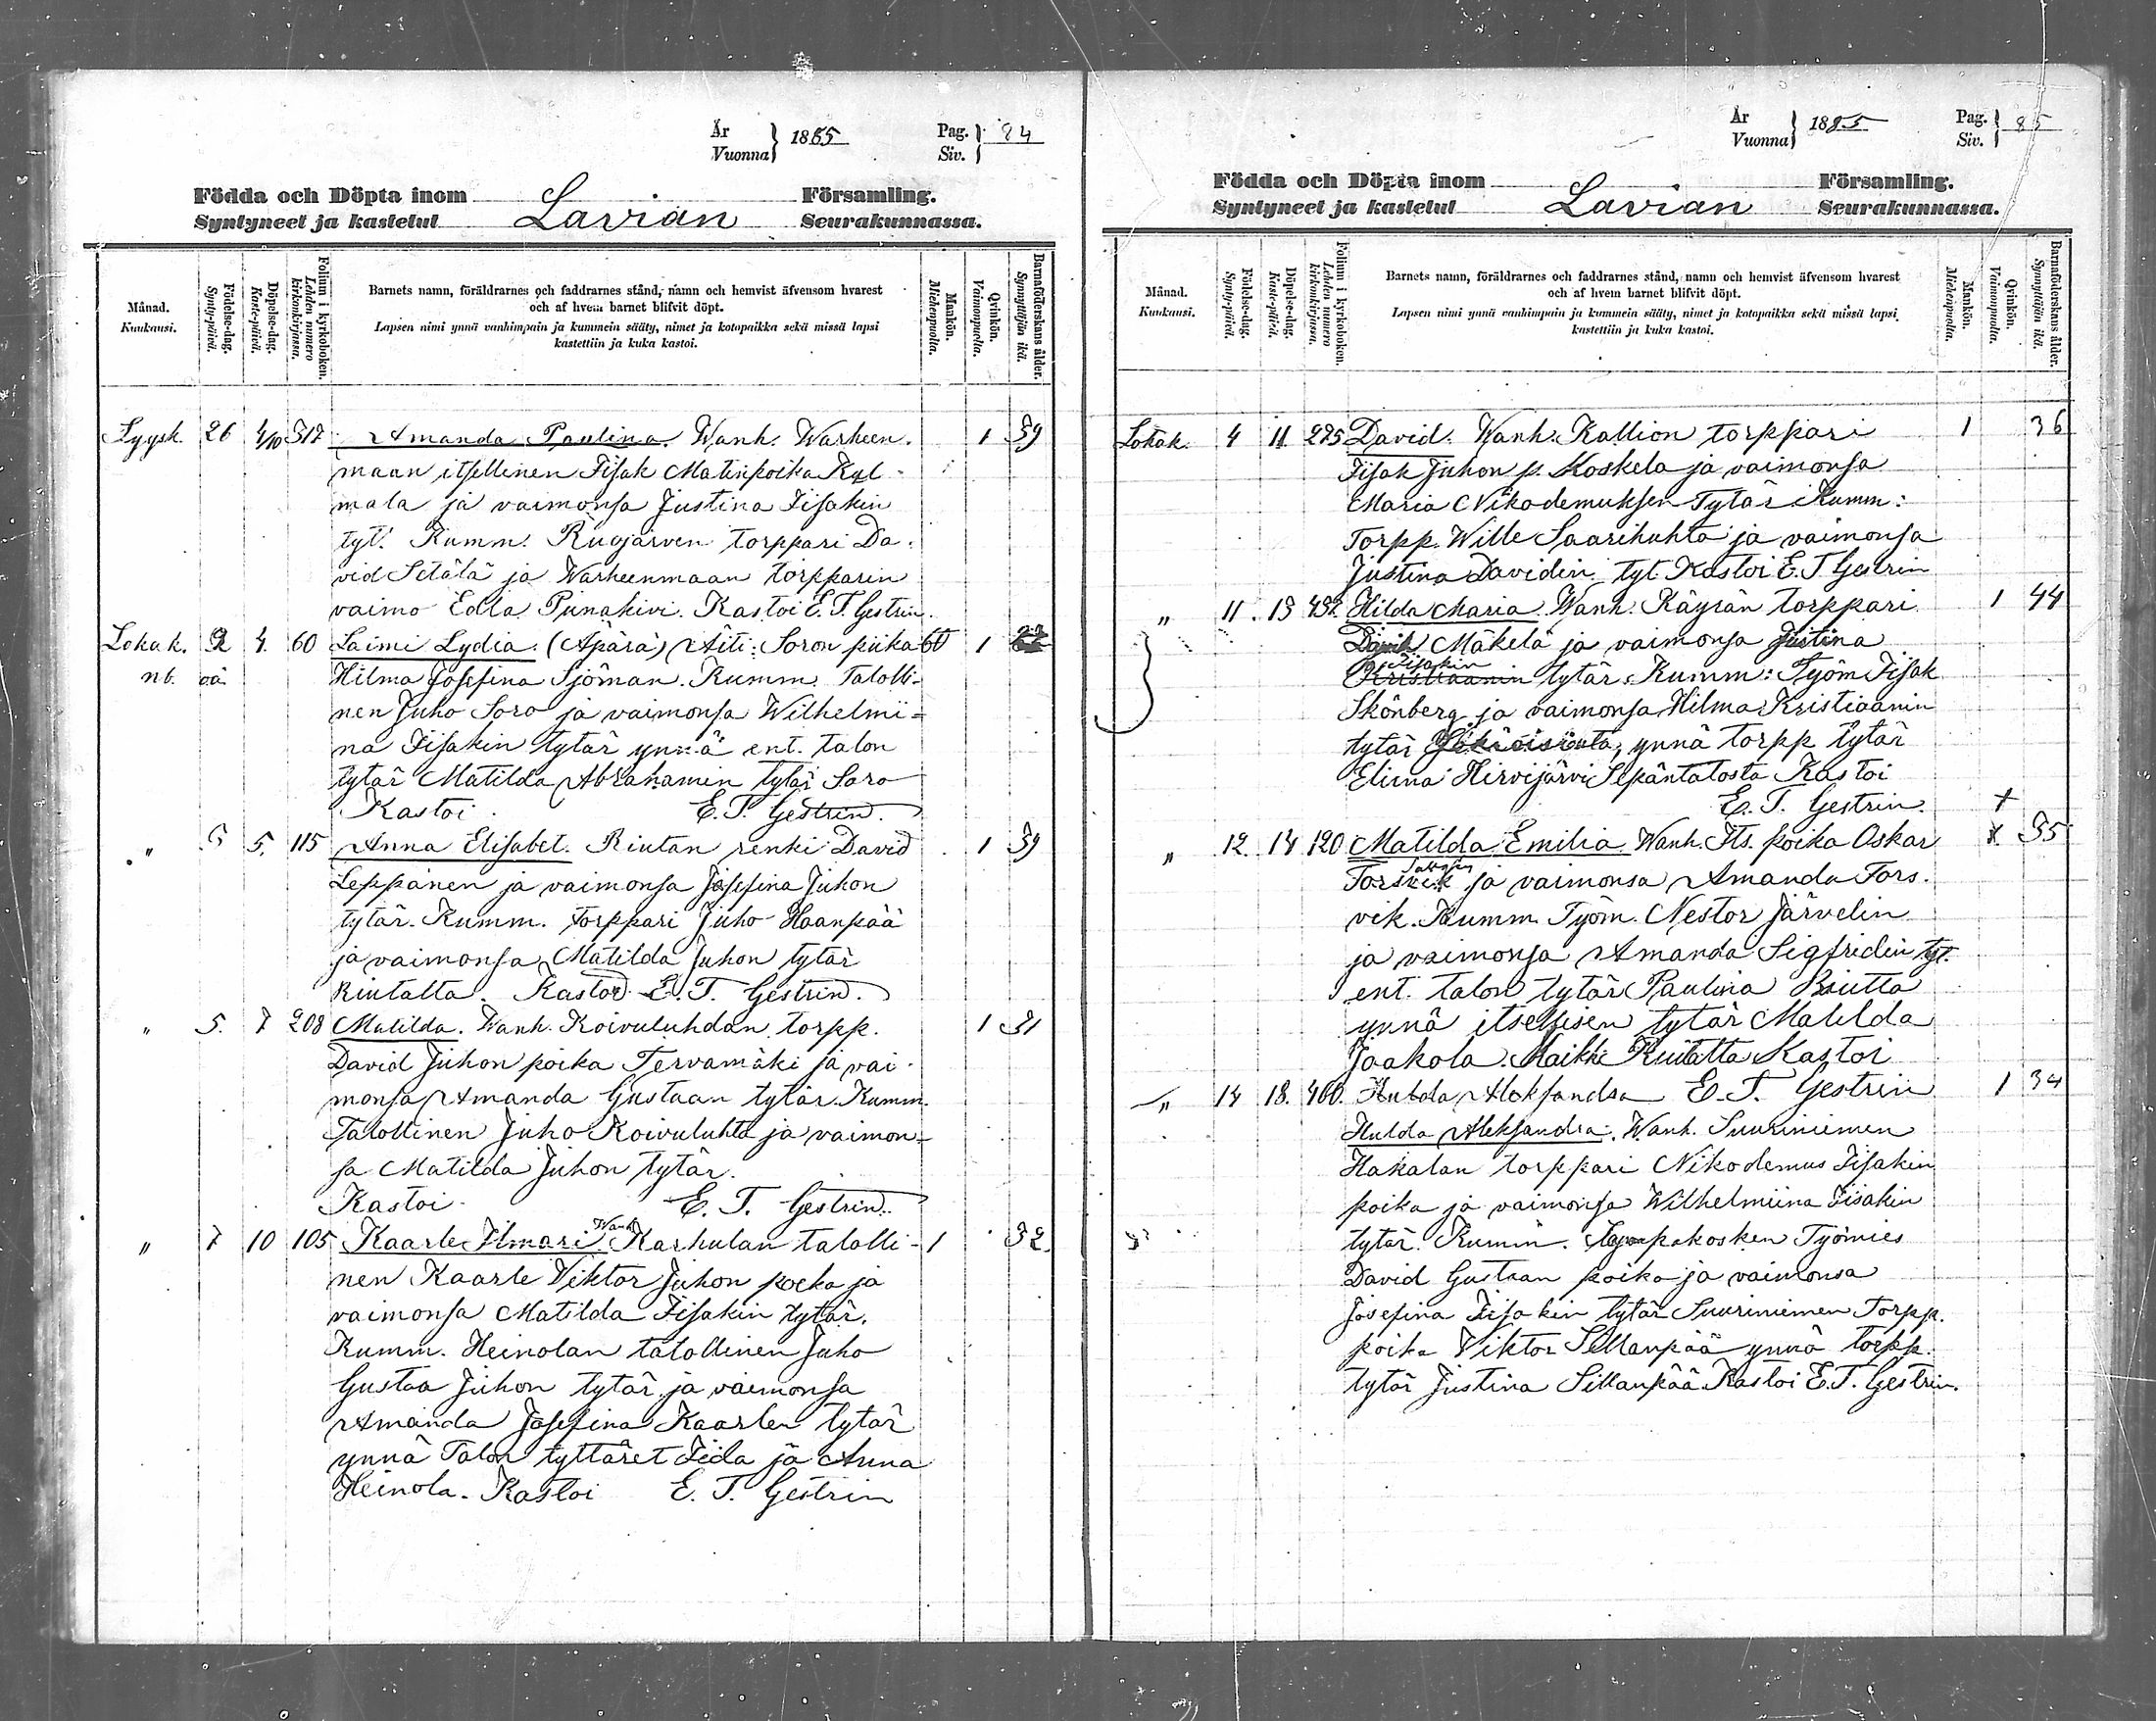 År
Vuonna } 1885 Pag.
Siv. } 84
Födda och Döpta inom Församling.
Syntyneet ja kastetut Lavian Seurakunnassa.
Månad.
Kuukausi.
Födelse-dag.
Synty-päivä.
Döpelse-dag.
Kaste-päivä.
Folium i kyrkoboken.
Lehden numero kirkonkirjassa.
Barnets namn, föräldrarnes och faddrarnes stånd, namn och hemvist äfvensom hvarest
och af hvem barnet blifvit döpt.
Lapsen nimi ynnä vanhimpain ja kummein sääty, nimet ja kotopaikka sekä missä lapsi
kastettiin ja kuka kastoi.
Mankön.
Miehenpuolta.
Qvinkön.
Vaimonpuolta.
Barnaföderskans ålder.
Synnyttäjän ikä.
Syysk. 26 4/10 317 Amanda Paulina. Wanh. Warheen- 1 39
maan itsellinen Iisak Matinpoika Kyl-
mala ja vaimonsa Justina Iisakin
tyt. Kumm. Ruojärven torppari Da-
vid Setälä ja Warheenmaan torpparin
vaimo Edla Punakivi. Kastoi E. T. Gestrin.
Lokak. 2 4. 60 Laimi Lydia. (Äpärä) Äiti: Soron piika 60 1
nb. oä Hilma Josefina Sjöman. Kumm. Talolli-
nen Juho Soro ja vaimonsa Wilhelmii-
na Iisakin tytär ynnä ent. talon
tytär Matilda Abrahamin tytär Soro
Kastoi E. T. Gestrin.
" 5. 115 Anna Elisabet. Riutan renki David 1 39
Leppänen ja vaimonsa Josefina Juhon
tytär. Kumm. torppari Juho Haanpää
ja vaimonsa Matilda Juhon tytär
Riutalta. Kastoi E. T. Gestrin.
" 5. 7 208 Matilda. Wanh. Koivuluhdan torpp. 1 31
David Juhon poika Tervamäki ja vai-
monsa Amanda Gustaan tytär. Kumm.
Talollinen Juho Koivuluhta ja vaimon-
sa Matilda Juhon tytär.
Kastoi E. T. Gestrin.
" 7 10 105 Kaarle Ilmari. Wanh. Karhulan talolli- 1 32.
nen Kaarle Viktor Juhon poika ja
vaimonsa Matilda Iisakin tytär.
Kumm. Heinolan talollinen Juho
Gustaa Juhon tytär ja vaimonsa
Amanda Josefina Kaarlen tytär
ynnä Talon tyttäret Iida ja Anna
Heinola. Kastoi E. T. Gestrin
År
Vuonna } 1885 Pag.
Siv. } 85
Födda och Döpta inom Församling.
Syntyneet ja kastetut Lavian Seurakunnassa.
Månad.
Kuukausi.
Födelse-dag.
Synty-päivä.
Döpelse-dag.
Kaste-päivä.
Folium i kyrkoboken.
Lehden numero kirkonkirjassa.
Barnets namn, föräldrarnes och faddrarnes stånd, namn och hemvist äfvensom hvarest
och af hvem barnet blifvit döpt.
Lapsen nimi ynnä vanhimpain ja kummein sääty, nimet ja kotopaikka sekä missä lapsi
kastettiin ja kuka kastoi.
Mankön.
Miehenpuolta.
Qvinkön.
Vaimonpuolta.
Barnaföderskans ålder.
Synnyttäjän ikä.
Lokak. 4 11 275 David. Wanh. Kallion torppari 1 36
Iisak Juhon p. Koskela ja vaimonsa
Maria Nikodemuksen Tytär Kumm:
Torpp. Wille Saariluhta ja vaimonsa
Justina Davidin tyt. Kastoi E. T. Gestrin
" 11. 13 Hilda Maria. Wanh. Räyrän torppari 1 44
Mäkelä ja vaimonsa Justina
Iisakin
Kristiaanin tytär. Kumm: Työm Iisak
Skönberg ja vaimonsa Hilma Kristiaanin
tytär ynnä torpp tytär
Eliina Hirvijärvi Sepäntalosta Kastoi
E. T. Gestrin. +
" 12 14 120 Matilda Emilia. Wanh. Its. poika Oskar x 35
Torsvik ja vaimonsa Amanda Tors-
vik. Kumm. Työm. Nestor Järvelin
ja vaimonsa Amanda Sigfridin tyt.
ent. talon tytär Paulina Riutta
ynnä itsellisen tytär Matilda
Jaakola. Kaikki Riutalta Kastoi
" 14 18. 460. Hulda Aleksandra E. T. Gestrin 1 34
Hulda Aleksandra. Wanh. Suuriniemen
Hakalan torppari Nikodemus Iisakin
poika ja vaimonsa Wilhelmiina Iisakin
tytär. Kumm. Työmies
David Gustaan poika ja vaimonsa
Josefina Iisakin tytär Suuriniemen Torpp.
poika Viktor Sillanpää ynnä torpp.
tytär Justina Sillanpää Kastoi E. T. Gestrin.